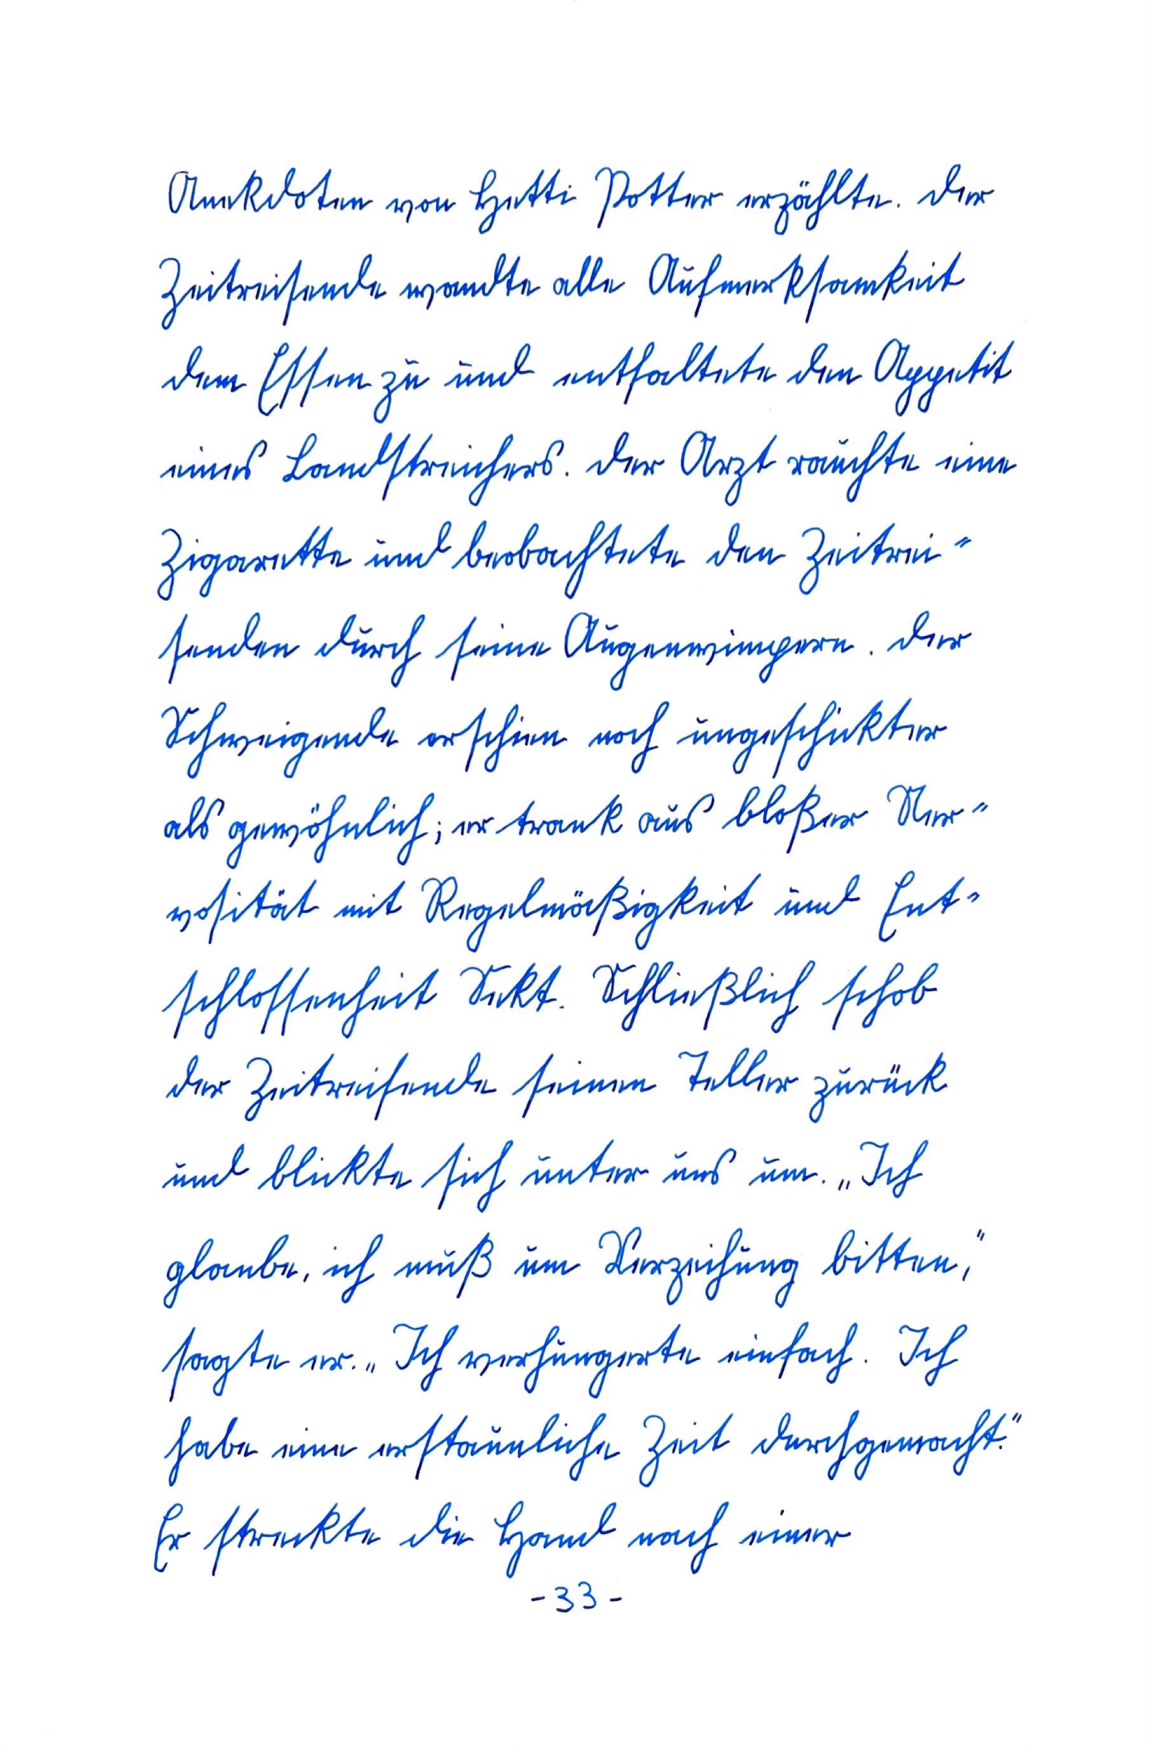 Anekdoten von Hetti Potter erzählte. Der
Zeitreisende wandte alle Aufmerksamkeit
dem Essen zu und entfaltete den Appetit
eines Landstreichers. Der Arzt rauchte eine
Zigarette und beobachtete den Zeitrei=
senden durch seine Augenwimpern. Der
Schweigende erschien noch ungeschickter
als gewöhnlich; er trank aus bloßer Ner=
vosität mit Regelmäßigkeit und Ent=
schlossenheit Sekt. Schließlich schob
der Zeitreisende seinen Teller zurück
und blickte sich unter uns um. „Ich
glaube, ich muß um Verzeihung bitten,"
sagte er. „Ich verhungerte einfach. Ich
habe eine erstaunliche Zeit durchgemacht."
Er streckte die Hand nach einer
-33-